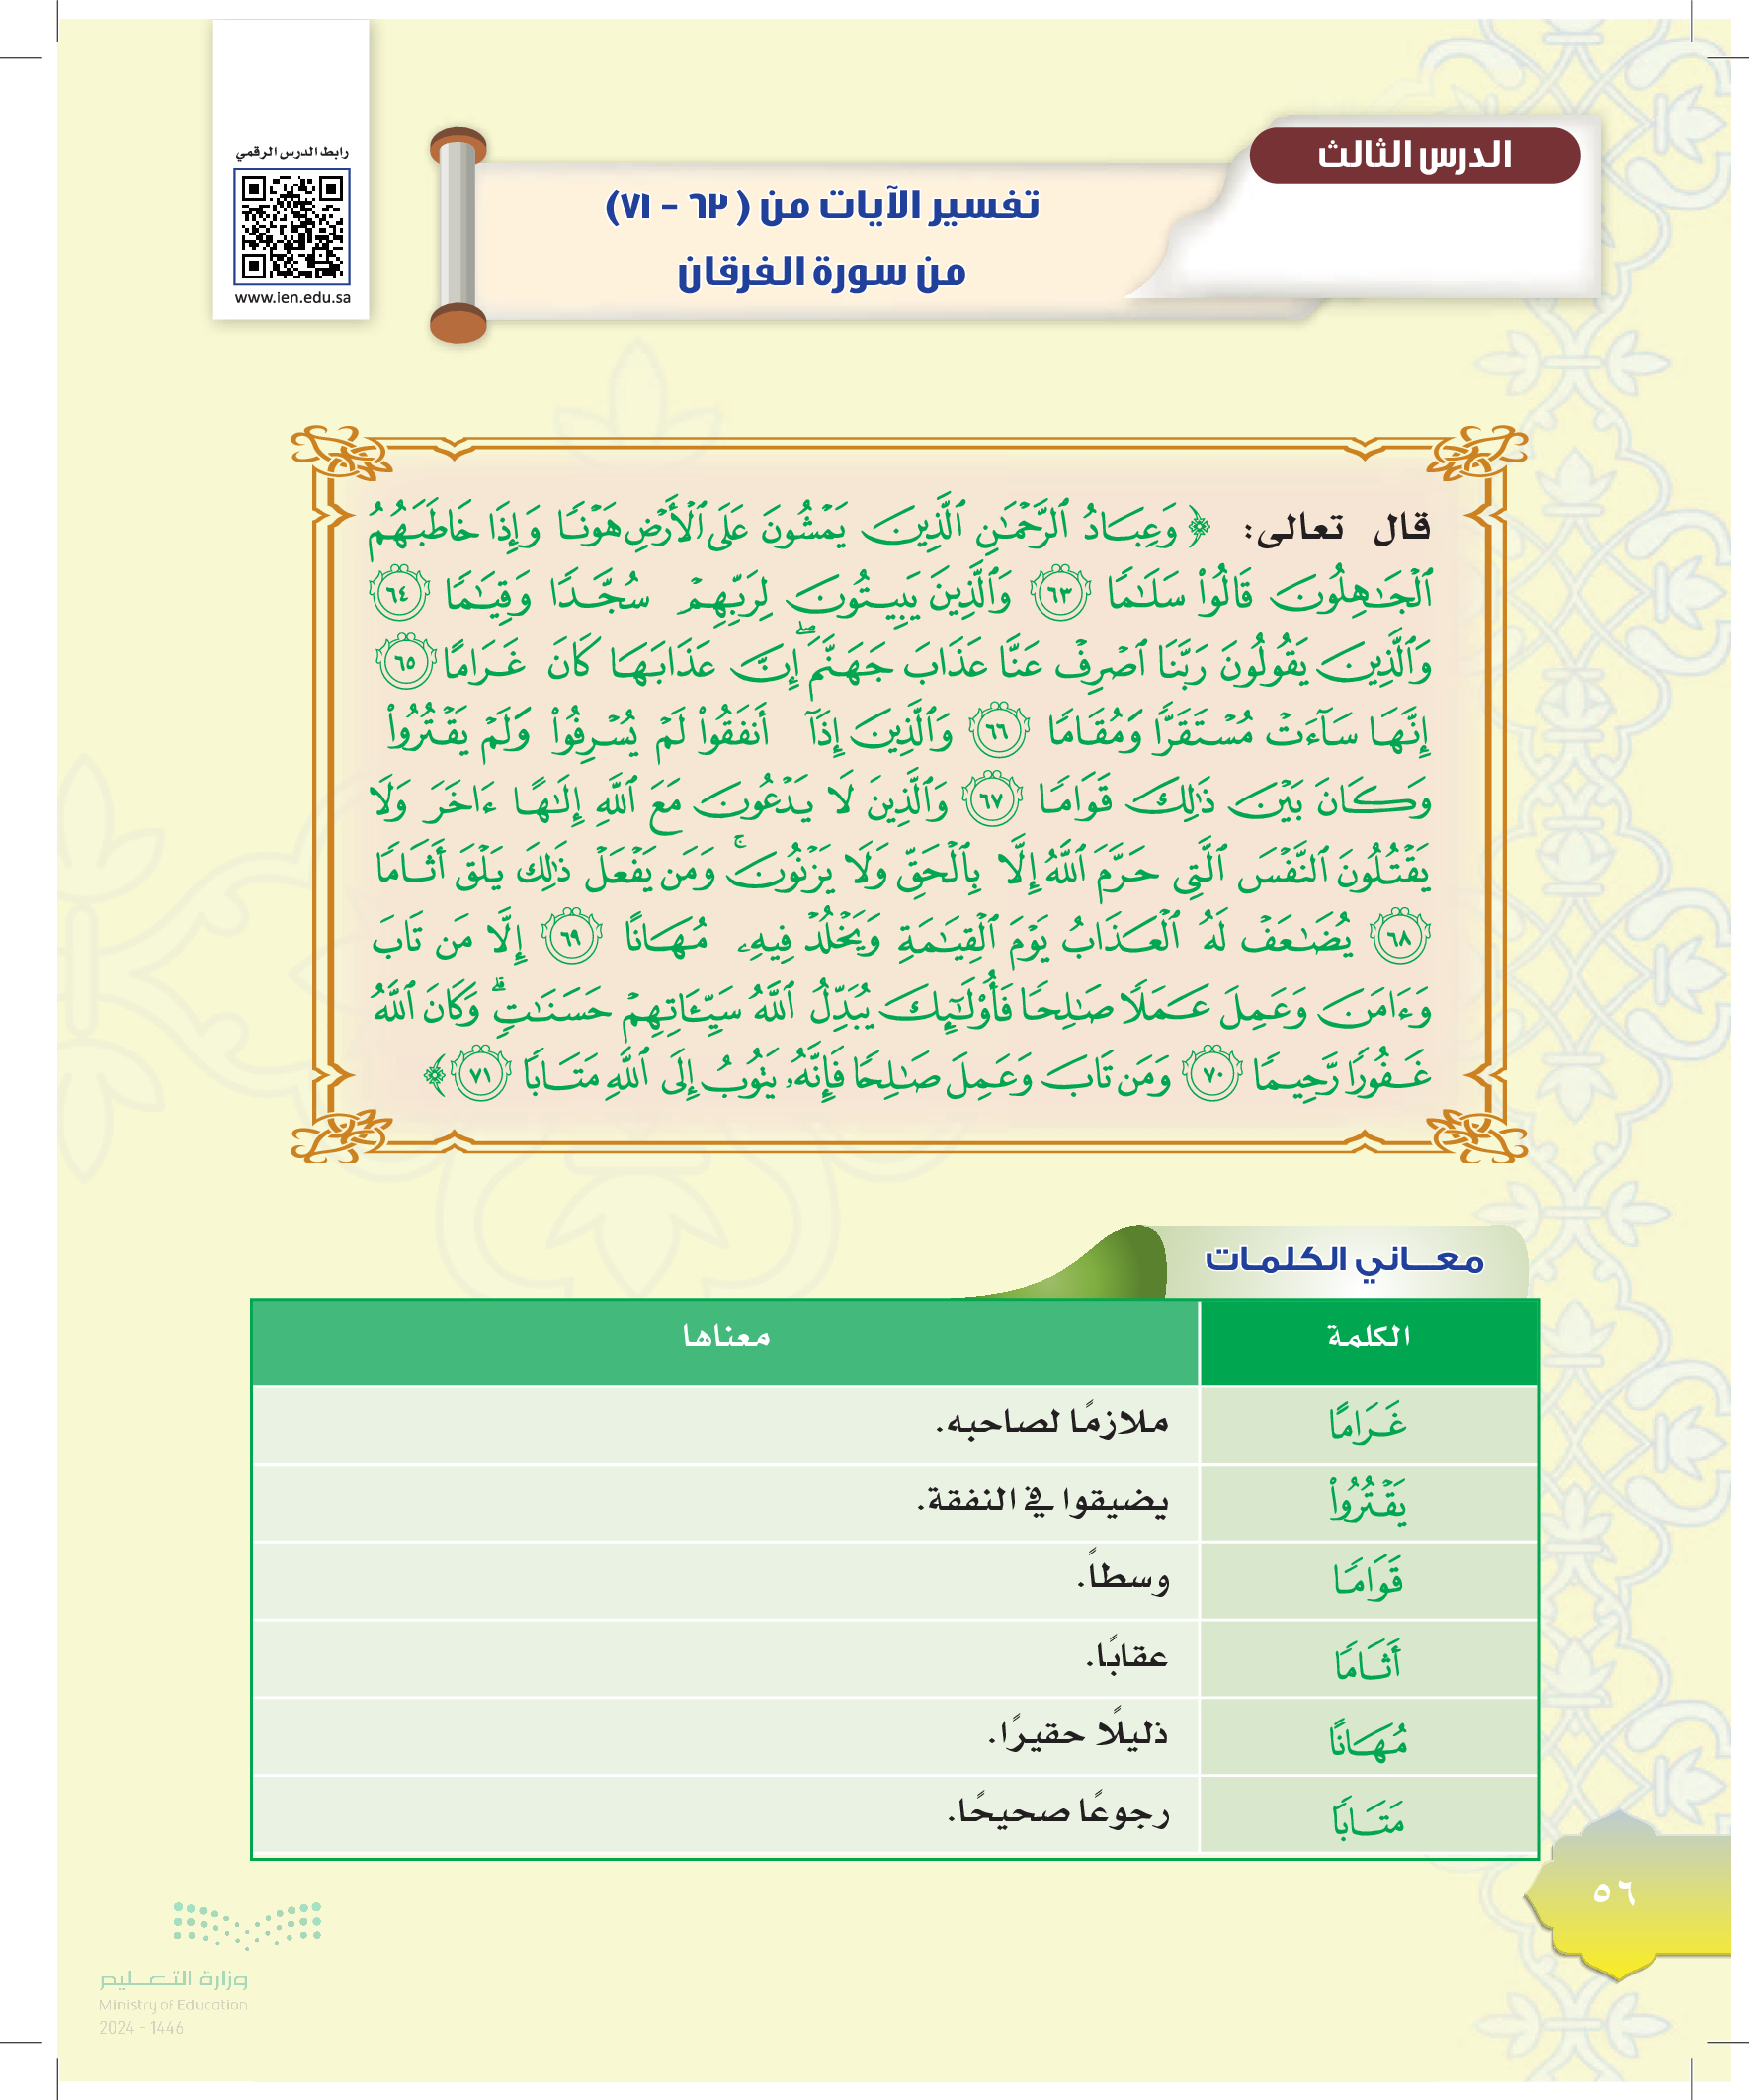 رابط الدرس الرقمي
www.ien.edu.sa
الدرس الثالث
تفسير الآيات من (٦٣ - ٧١)
من سورة الفرقان
قال تعالى: ﴿ وَعِبَادُ ٱلرَّحْمَٰنِ ٱلَّذِينَ يَمْشُونَ عَلَى ٱلْأَرْضِ هَوْنًا وَإِذَا خَاطَبَهُمُ
ٱلْجَٰهِلُونَ قَالُوا۟ سَلَٰمًا ٦٣ وَٱلَّذِينَ يَبِيتُونَ لِرَبِّهِمْ سُجَّدًا وَقِيَٰمًا ٦٤
وَٱلَّذِينَ يَقُولُونَ رَبَّنَا ٱصْرِفْ عَنَّا عَذَابَ جَهَنَّمَ ۖ إِنَّ عَذَابَهَا كَانَ غَرَامًا ٦٥
إِنَّهَا سَآءَتْ مُسْتَقَرًّا وَمُقَامًا ٦٦ وَٱلَّذِينَ إِذَآ أَنفَقُوا۟ لَمْ يُسْرِفُوا۟ وَلَمْ يَقْتُرُوا۟
وَكَانَ بَيْنَ ذَٰلِكَ قَوَامًا ٦٧ وَٱلَّذِينَ لَا يَدْعُونَ مَعَ ٱللَّهِ إِلَٰهًا ءَاخَرَ وَلَا
يَقْتُلُونَ ٱلنَّفْسَ ٱلَّتِى حَرَّمَ ٱللَّهُ إِلَّا بِٱلْحَقِّ وَلَا يَزْنُونَ ۚ وَمَن يَفْعَلْ ذَٰلِكَ يَلْقَ أَثَامًا
٦٨ يُضَٰعَفْ لَهُ ٱلْعَذَابُ يَوْمَ ٱلْقِيَٰمَةِ وَيَخْلُدْ فِيهِۦ مُهَانًا ٦٩ إِلَّا مَن تَابَ
وَءَامَنَ وَعَمِلَ عَمَلًا صَٰلِحًا فَأُو۟لَٰٓئِكَ يُبَدِّلُ ٱللَّهُ سَيِّـَٔاتِهِمْ حَسَنَٰتٍ ۗ وَكَانَ ٱللَّهُ
غَفُورًا رَّحِيمًا ٧٠ وَمَن تَابَ وَعَمِلَ صَٰلِحًا فَإِنَّهُۥ يَتُوبُ إِلَى ٱللَّهِ مَتَابًا ٧١ ﴾
معـــاني الكلمـات
الكلمة معناها
غَرَامًا ملازمًا لصاحبه.
يَقْتُرُوا۟ يضيقوا في النفقة.
قَوَامًا وسطاً.
أَثَامًا عقابًا.
مُهَانًا ذليلًا حقيرًا.
مَتَابًا رجوعًا صحيحًا.
٥٦
وزارة التعـــليم
Ministry of Education
2024 - 1446